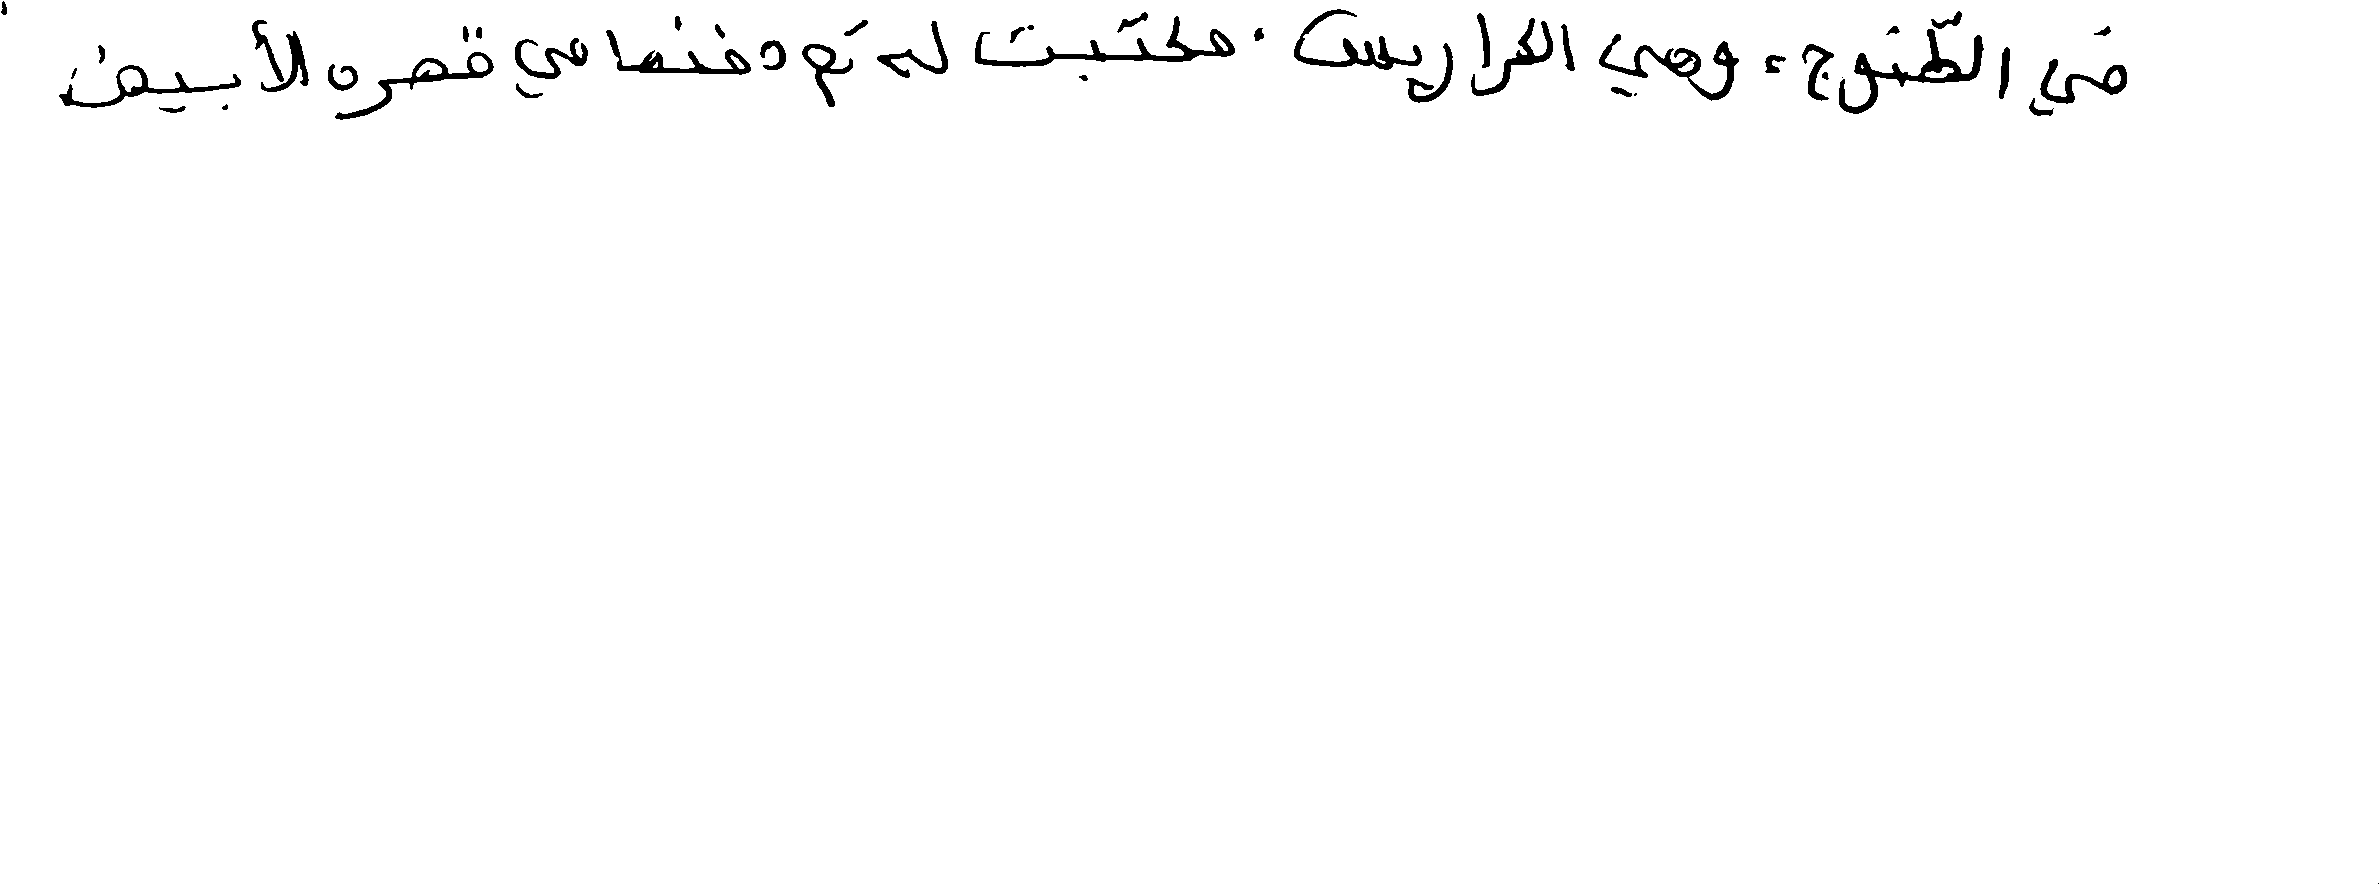 في الطّنوج، وهي الكراريس. فكتبت له ثم دفنها في قصره الأبيض